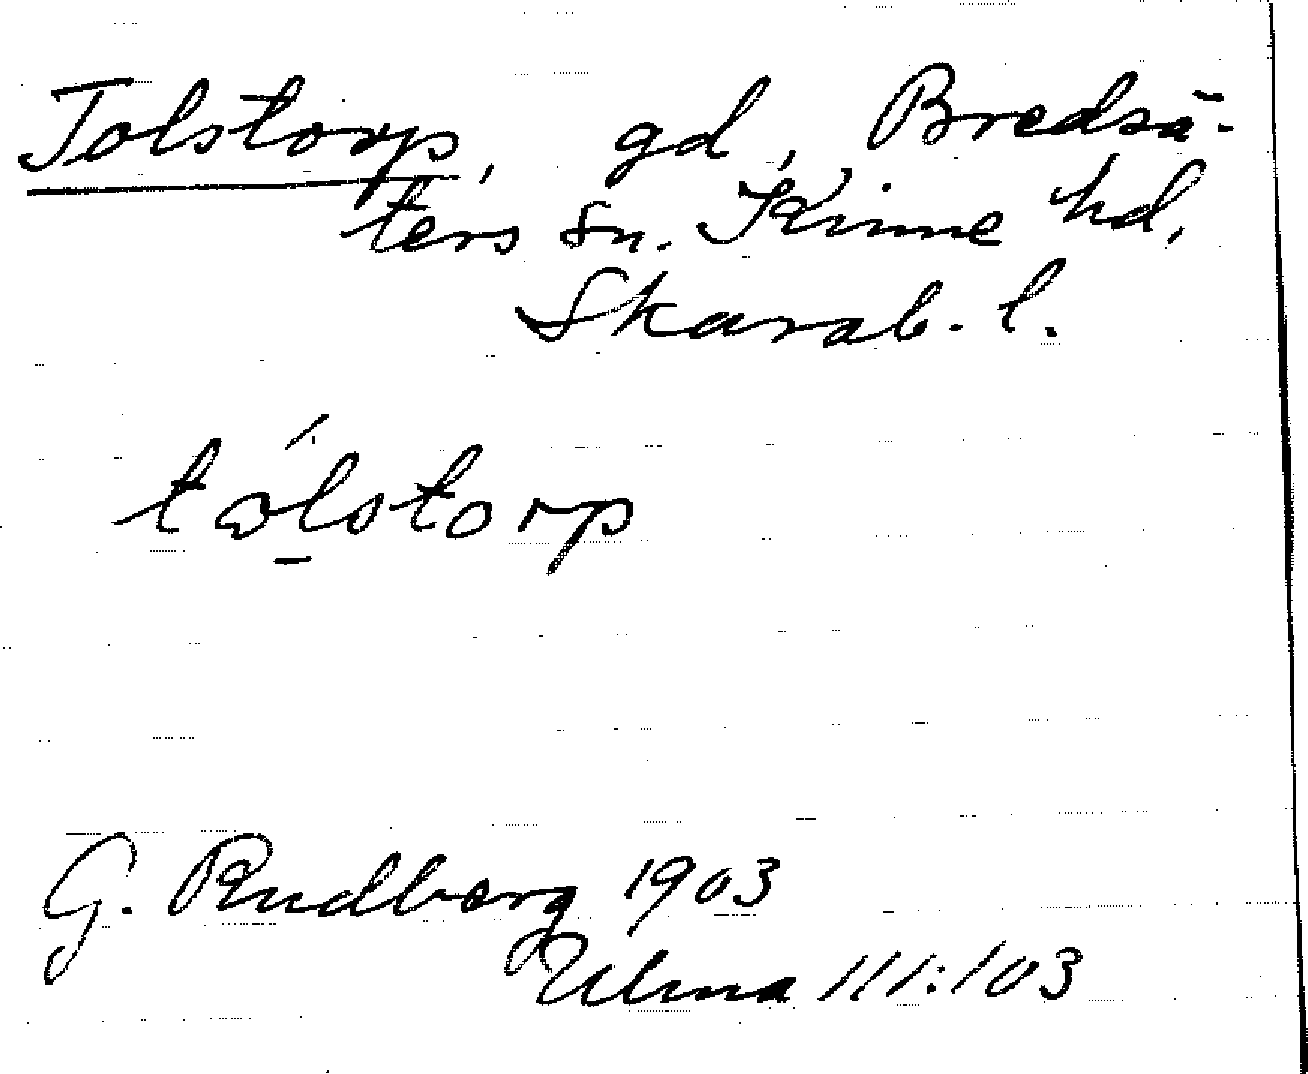 Tolstorp, gd, Bredsä-
ters sn. Kinne hd,
Skarab. l.
tólstorp
G. Rudberg 1903
Ulma 111:103